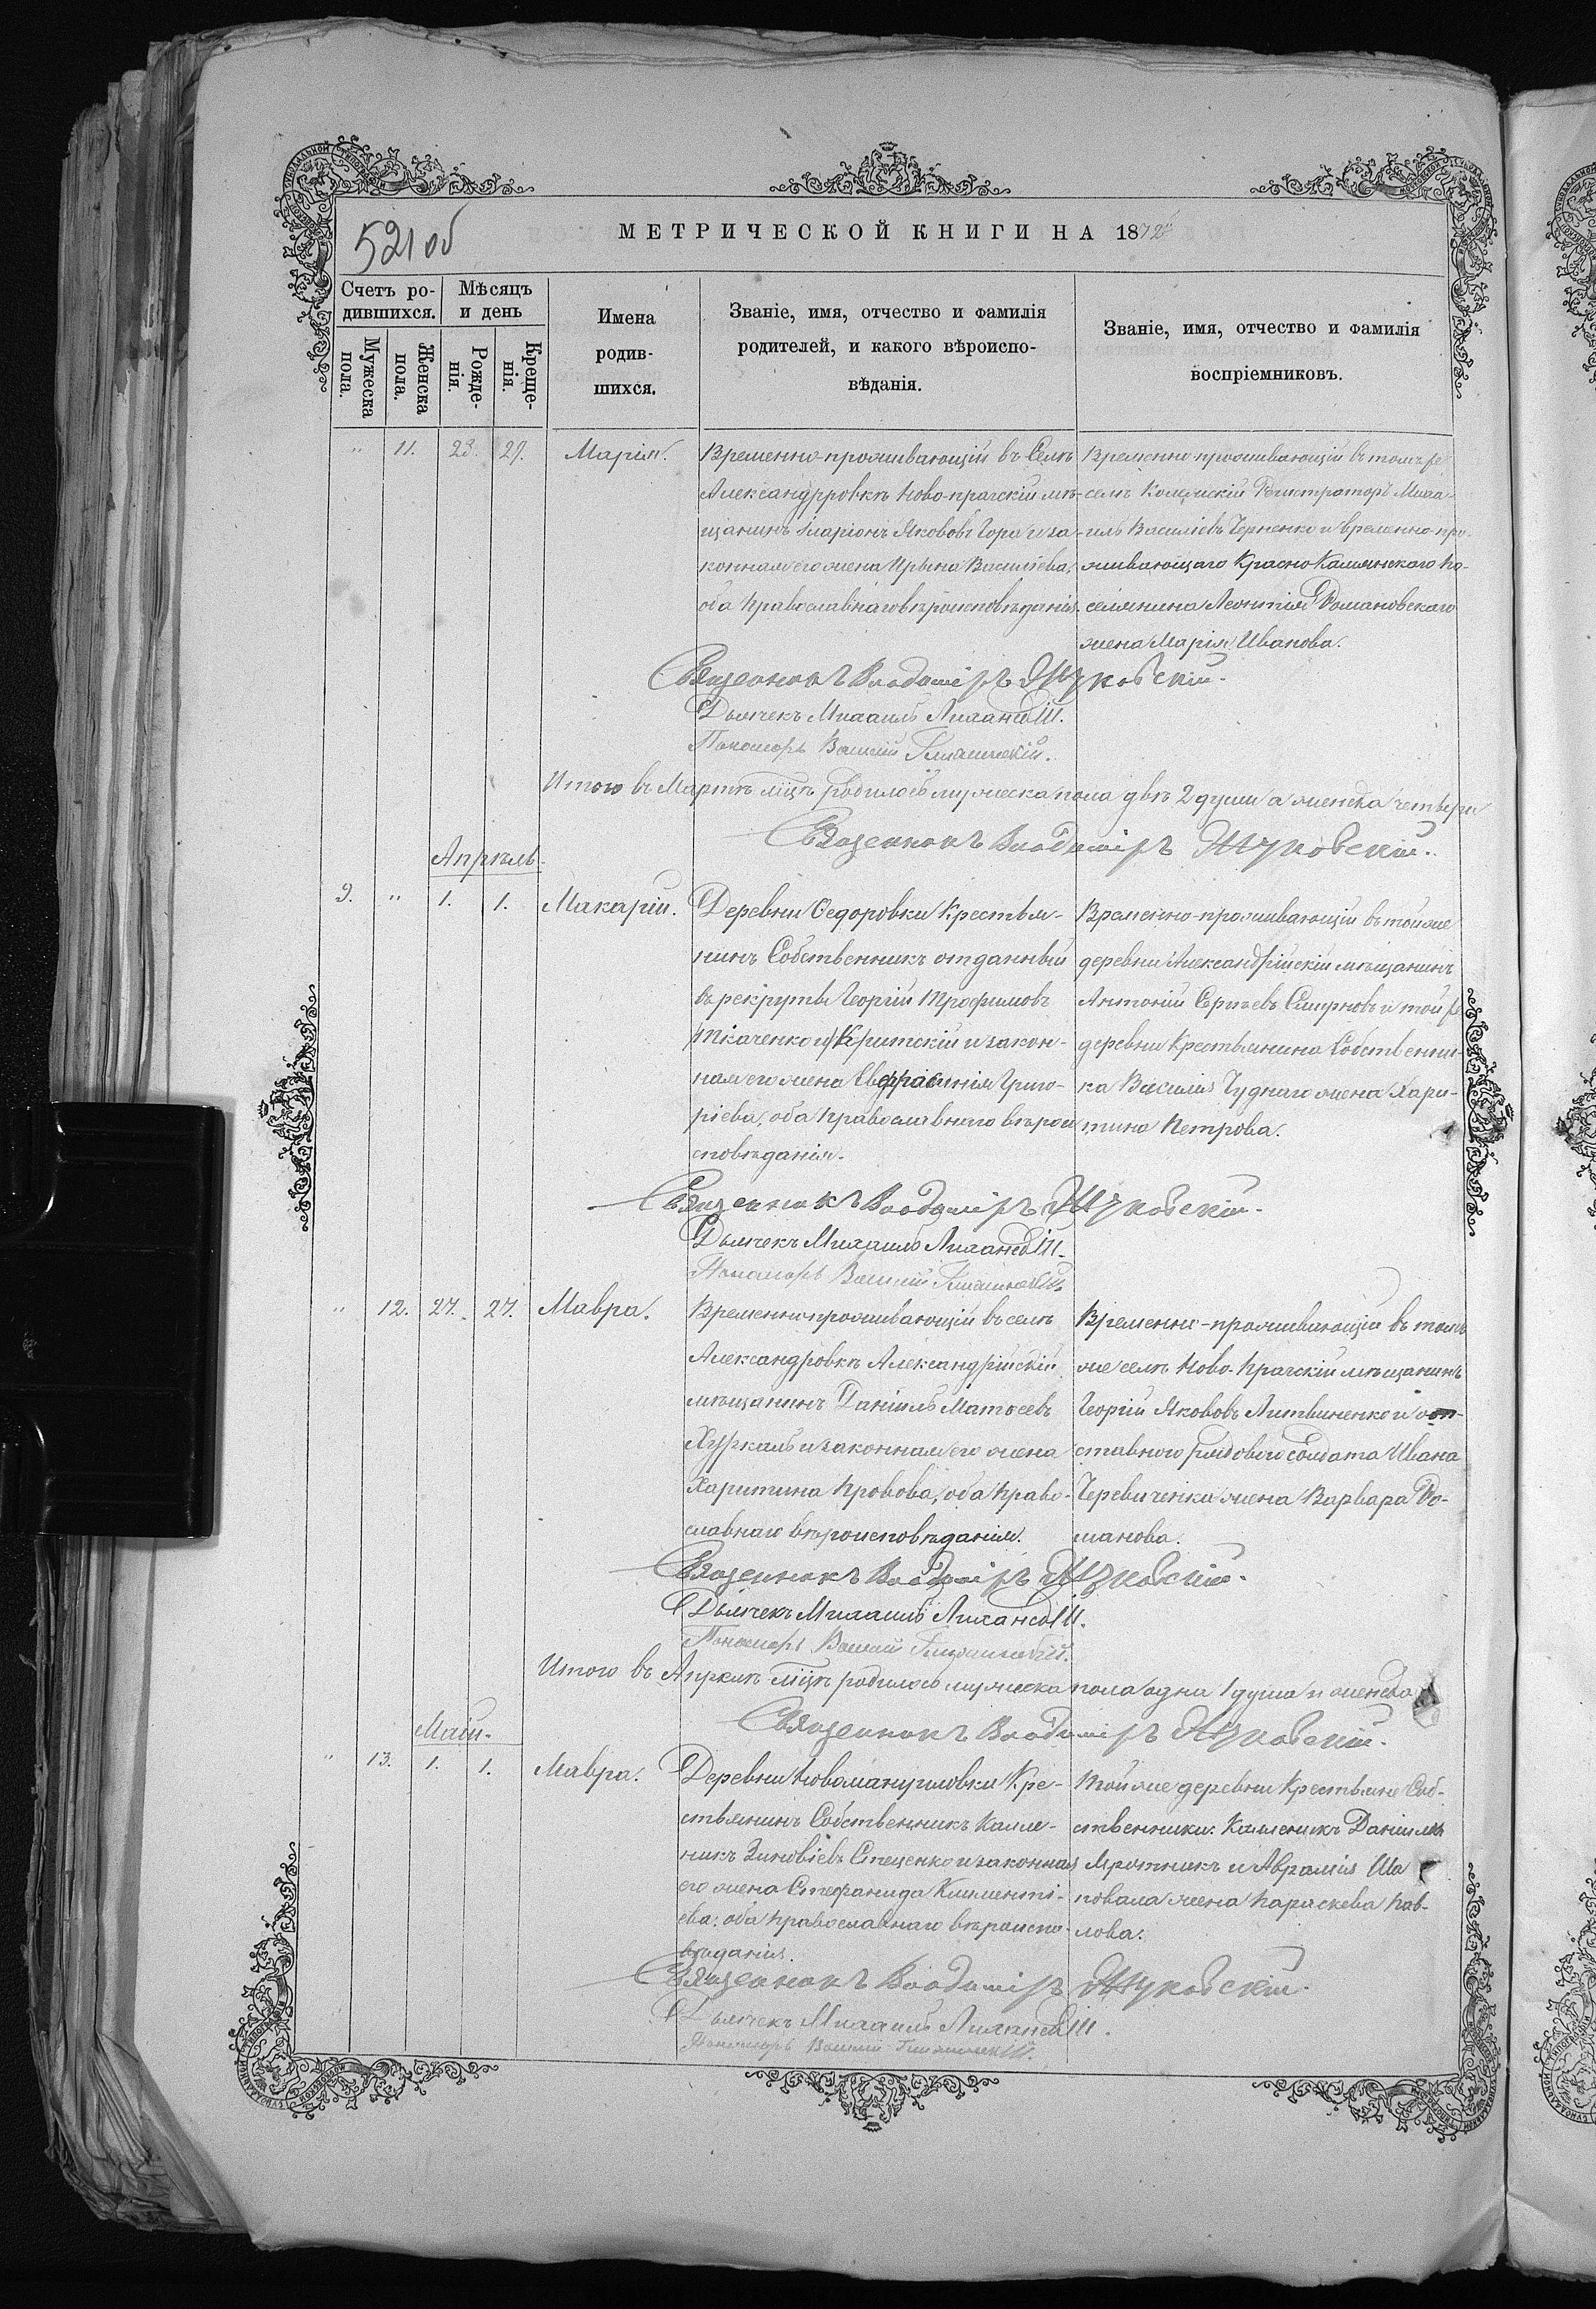 521 об
МЕТРИЧЕСКОЙ КНИГИ НА 1872
Счетъ ро-
дившихся.
Мѣсяцъ
и день
Мужеска
пола.
Женска
пола.
Рожде-
нія.
Креще-
нія.
Имена
родив-
шихся.
Званіе, имя, отчество и фамилія
родителей, и какого вѣроиспо-
вѣданія.
Званіе, имя, отчество и фамилія
воспріемниковъ.
" 11. 23. 27. Марія.
Временно-проживающій въ Селѣ
Александровкѣ Ново-прагскій мѣ-
щанинъ Иларіонъ Яковов Гора и за-
конная его жена Ирына Василіева,
оба православнаго вѣроисповѣданія.
Временно проживающій въ томъ же
селѣ Регистраторъ Миха-
илъ Василіевъ Черненко и временно-про-
живающаго Красно-Каменского по-
селянина Леонтія Домановскаго
жена Марія Иванова.
Священникъ Владиміръ Жуковскій.
Дьячекъ Михаилъ Лиханскій.
Пономарь
Итого въ Мартѣ мцѣ родилось мужеска пола двѣ 2 души а женска четыри
Священникъ Владиміръ Жуковскій.
Апрѣль.
9. " 1. 1. Макарій.
Деревни Ѳедоровки Крестья-
нинъ Собственникъ отданный
въ рекруты Георгій Трофимовъ
Ткаченко и Критскій и закон-
ная его жена Евфросинія Григо-
ріева, оба православнаго вѣрои
сповѣданія.
Временно-проживающій въ той же
деревни Александрійскій мѣщанинъ
Антоній Сергѣевъ Смирновъ и той же
деревни Крестьянина Собственни-
ка Василія Чуднаго жена Хари-
тина Петрова.
Священникъ Владиміръ Жуковскій.
Дьячекъ Михаилъ Лиханскій.
Пономарь
" 12. 27. 27. Мавра.
Временно проживающій въ селѣ
Александровкѣ Александрійскій
мѣщанинъ Даніилъ Матѳеевъ
и законная его жена
Харитина Провова, оба право-
славнаго вѣроисповѣданія.
Временно-проживающій въ томъ
же селѣ Ново-Прагскій мѣщанинъ
Георгій Яковов Литвиненко и от-
ставного рядового солдата Ивана
Черевиченка жена Варвара Ро-
манова.
Священникъ Владиміръ Жуковскій.
Дьячекъ Михаилъ Лиханскій.
Пономарь
Итого въ Апрѣлѣ мцѣ родилось мужеска пола одна 1 душа и женска
Священникъ Владиміръ Жуковскій.
Май.
" 13. 1. 1. Мавра.
Деревни Новомануиловки Кре-
стьянинъ Собственникъ Калле-
никъ Зиновіевъ Стеценко и законная
его жена Стефанида Клименті-
ева, оба православнаго вѣроиспо-
вѣданія.
Той же деревни Крестьяне Соб-
ственники: Каленикъ Даніиловъ
и Аврамія Ша
повала жена Параскева Пав-
лова.
Священникъ Владиміръ Жуковскій.
Дьячекъ Михаилъ Лиханскій.
Пономарь